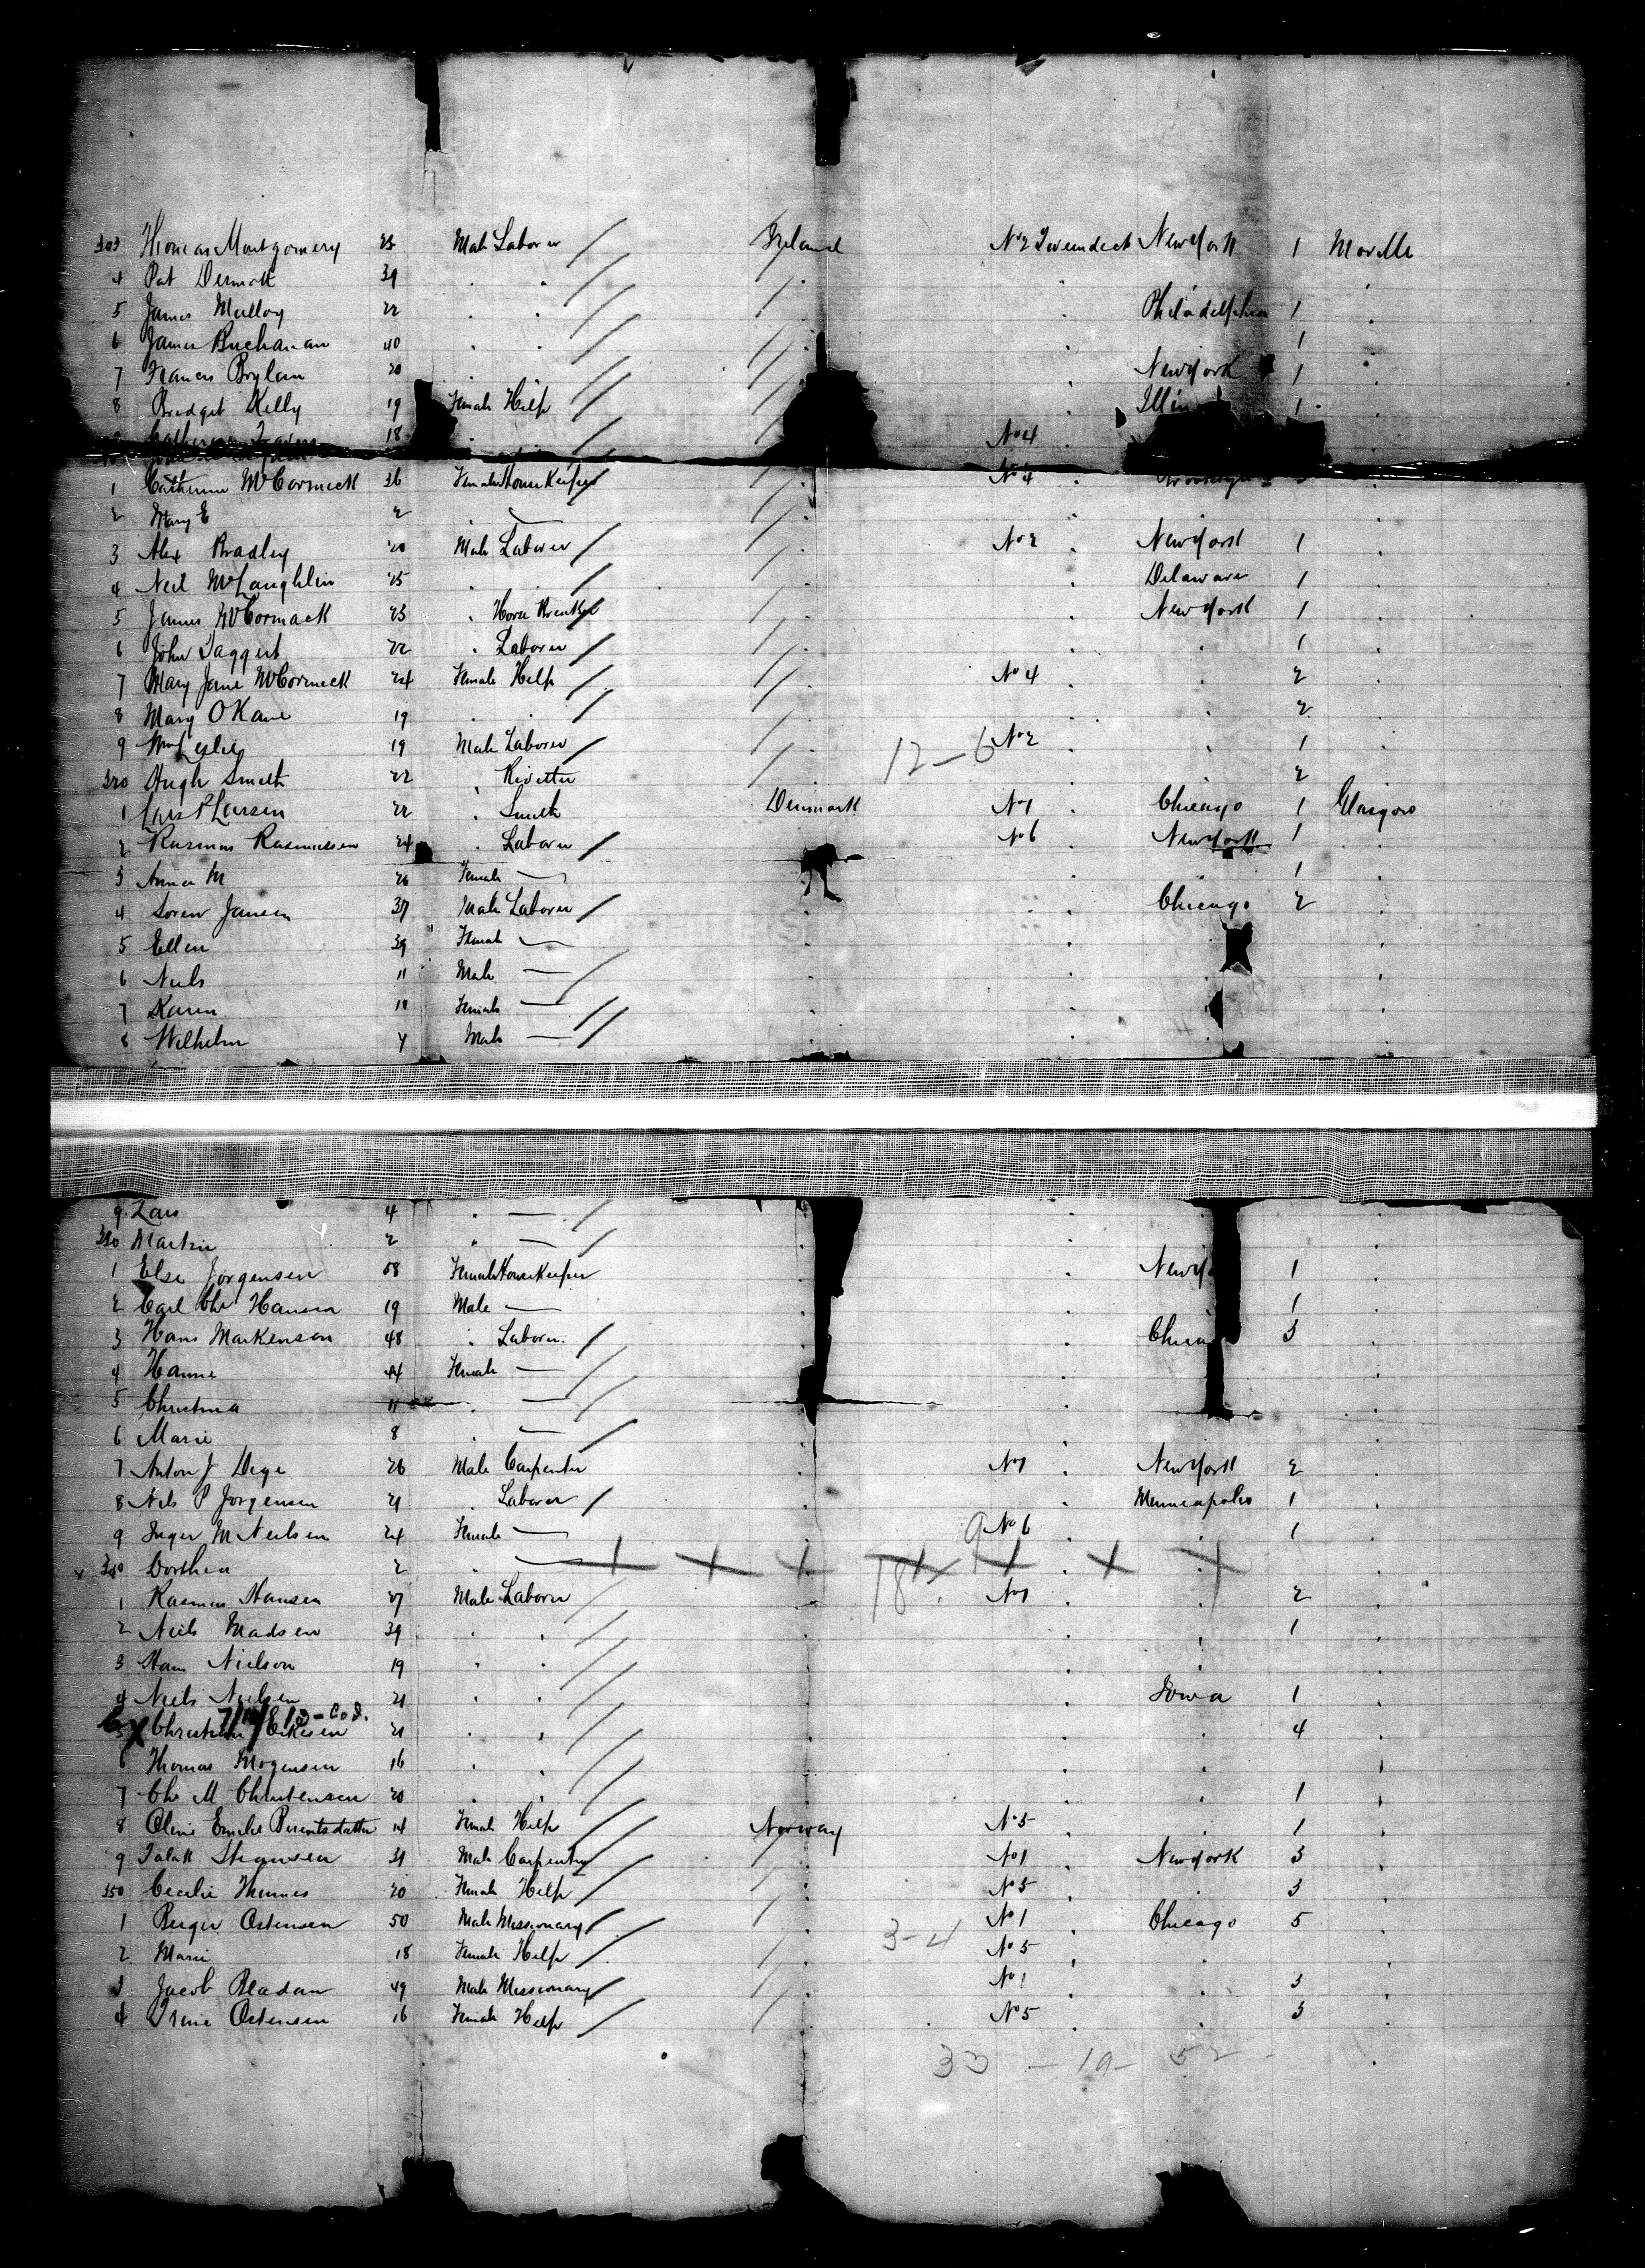 303 Thomas Montgomery 25 Male Laborer Ireland No 2 Tweendeck New York 1 Moville
4 Pat Dermott 39
5 James Mulloy 22 Philadelphia 1
6 James Buchanan 40 1
7 Francis Boylan 20 New York 1
8 Bridget Kelly 19 Female Help Illin 1
Catherine 18 No 4
1 Catherine McCormick 36 Female House Keeper No 4
2 Mary E 2
3 Alex Bradley 20 Male Laborer No 2 New York 1
4 Neil McLaughlin 25 Delaware 1
5 James McCormack 23 Horse Breaker New York 1
6 John Taggert 22 Laborer 1
7 Mary Jane McCormick 24 Female Help No 4 2
8 Mary O Kane 19 2
9 Wm Leslie 19 Male Laborer No 2 1
12-6
320 Hugh Smith 22 Rivetter 2
1 Lars P Larsen 22 Smith Denmark No 1 Chicago 1 Glasgow
2 Rasmus Rasmussen 24 Laborer No 6 New York 1
3 Anna M 26 Female 1
4 Soren Jansen 37 Male Laborer Chicago 2
5 Ellen 39 Female
6 Niels 11 Male
7 Karen 10 Female
8 Wilhelm 7 Male
9 Lars 4
330 Martin 2
1 Else Jorgensen 58 Female House Keeper New Yo 1
2 Carl Chr Hansen 19 Male 1
3 Hans Markenson 48 Laborer Chica 3
4 Hanne 44 Female
5 Christina 11
6 Marie 8
7 Anton J Dege 26 Male Carpenter No 1 New York 2
8 Nels P Jorgensen 21 Laborer Minneapolis 1
9 Inger M Neilsen 24 Female No 6 1
340 Dorthea 2
1 Rasmus Hansen 27 Male Laborer No 1 2
18
2 Niels Madsen 39 1
3 Hans Nielson 19
4 Niels Nielsen 21 Iowa 1
5 Christian Eriksen 21 4
6 Thomas Mogensen 16
7 Chr M Christensen 20 1
8 Oline Emelie 14 Female Help Norway No 5 1
9 31 Male Carpenter No 1 New York 3
350 Cecilie 20 Female Help No 5 3
1 Berger Ostensen 50 Male Missionary No 1 Chicago 5
3-4
2 Marie 18 Female Help No 5
3 Jacob Bladan 49 Male Missionary No 1 3
4 Trine Ostensen 16 Female Help No 5 3
33 - 19 - 52